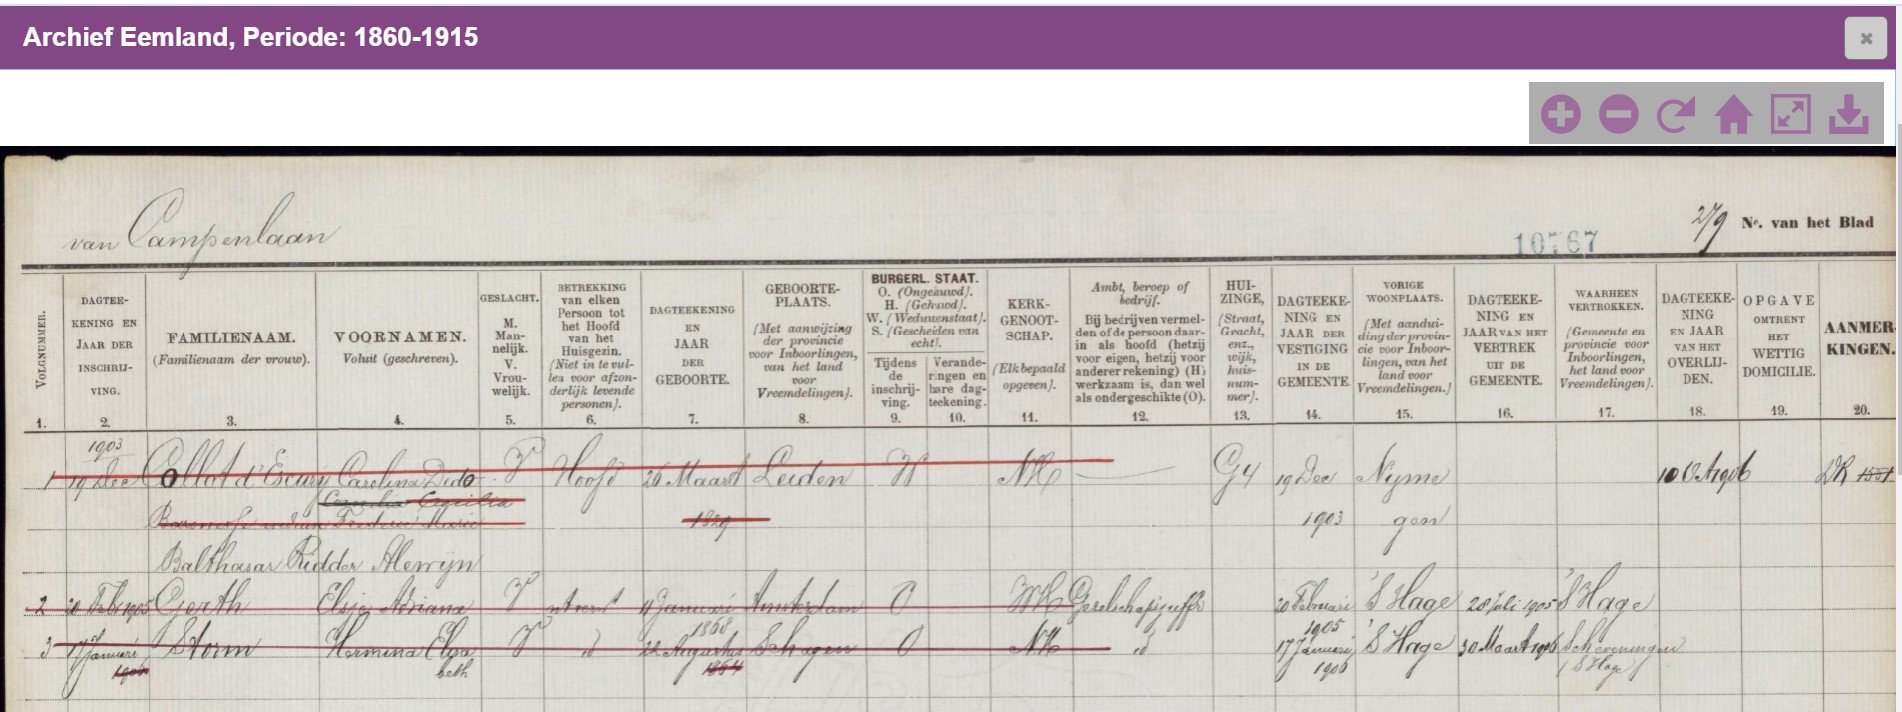 Archief Eemland, Periode: 1860-1915
van Campenlaan
279 No. van het Blad
10767
VOLGNUMMER.
1.
DAGTEE-
KENING EN
JAAR DER
INSCHRIJ-
VING.
2.
FAMILIENAAM.
(Familienaam der vrouw).
3.
VOORNAMEN.
Voluit (geschreven).
4.
GESLACHT.
M.
Man-
nelijk.
V.
Vrou-
welijk.
5.
BETREKKING
van elken
Persoon tot
het Hoofd
van het
Huisgezin.
(Niet in te vul-
len voor afzon-
derlijk levende
personen).
6.
DAGTEEKENING
EN
JAAR
DER
GEBOORTE.
7.
GEBOORTE-
PLAATS.
(Met aanwijzing
der provincie
voor Inboorlingen,
van het land
voor
Vreemdelingen).
8.
BURGERL. STAAT.
O. (Ongehuwd).
H. (Gehuwd).
W. (Weduwenstaat).
S. (Gescheiden van
echt).
Tijdens
de
inschrij-
ving.
9.
Verande-
ringen en
hare dag-
teekening.
10.
KERK-
GENOOT-
SCHAP.
(Elk bepaald
opgeven).
11.
Ambt, beroep of
bedrijf.
Bij bedrijven vermel-
den of de persoon daar-
in als hoofd (hetzij
voor eigen, hetzij voor
anderer rekening) (H)
werkzaam is, dan wel
als ondergeschikte (O).
12.
HUI-
ZINGE,
(Straat,
Gracht,
enz.,
wijk,
huis-
num-
mer).
13.
DAGTEEKE-
NING EN
JAAR DER
VESTIGING
IN DE
GEMEENTE.
14.
VORIGE
WOONPLAATS.
(Met aandui-
ding der provin-
cie voor Inboor-
lingen, van het
land voor
Vreemdelingen.)
15.
DAGTEEKE-
NING EN
JAAR VAN HET
VERTREK
UIT DE
GEMEENTE.
16.
WAARHEEN
VERTROKKEN.
(Gemeente en
provincie voor
Inboorlingen,
het land voor
Vreemdelingen).
17.
DAGTEEKE-
NING
EN JAAR
VAN HET
OVERLIJ-
DEN.
18.
OPGAVE
OMTRENT
HET
WETTIG
DOMICILIE.
19.
AANMER-
KINGEN.
20.
1903
1 19 Dec Collot d'Escury Carolina Dido V Hoofd 26 Maart Leiden W NH G4 19 Dec Nyme 10 Oct 1906
Cornelia Cecilia
Baronesse weduwe Frederic Marie 1829 1903 gen
Balthasar Ridder Alewijn
2 20 Febr 1905 Gerth Elsje Adriana V 11 Januari Amsterdam O NH 20 Februari 's Hage 28 Juli 1905 's Hage
1868 1905
3 17 Januari Storm Hermina Elisa V id 22 Augustus Schagen O NH id 17 Januari 's Hage 30 Maart 1906 Scheveningen
1906 beth 1864 1906 ('s Hage)